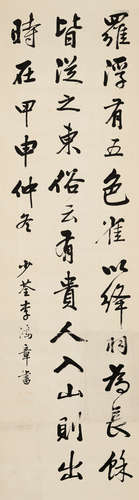 羅浮有五色雀以絳羽為長餘
皆從之東俗云有貴人入山則出
時在甲申仲冬 少荃李鴻章書